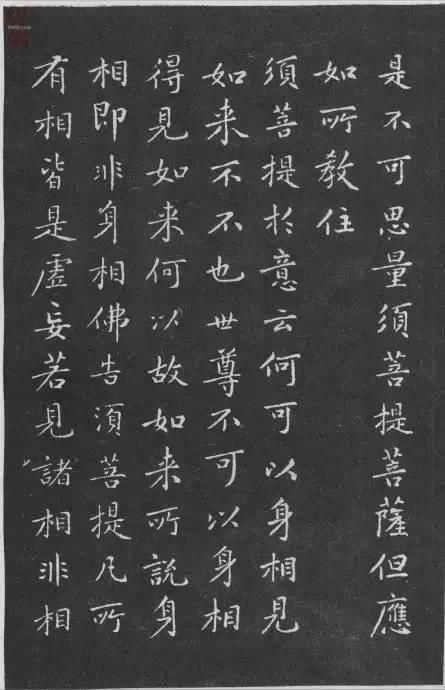 是不可思量須菩提菩薩但應
如所教住
須菩提於意云何可以身相見
如来不不也世尊不可以身相
得見如来何以故如来所說身
相即非身相佛告須菩提凡所
有相皆是虛妄若見諸相非相